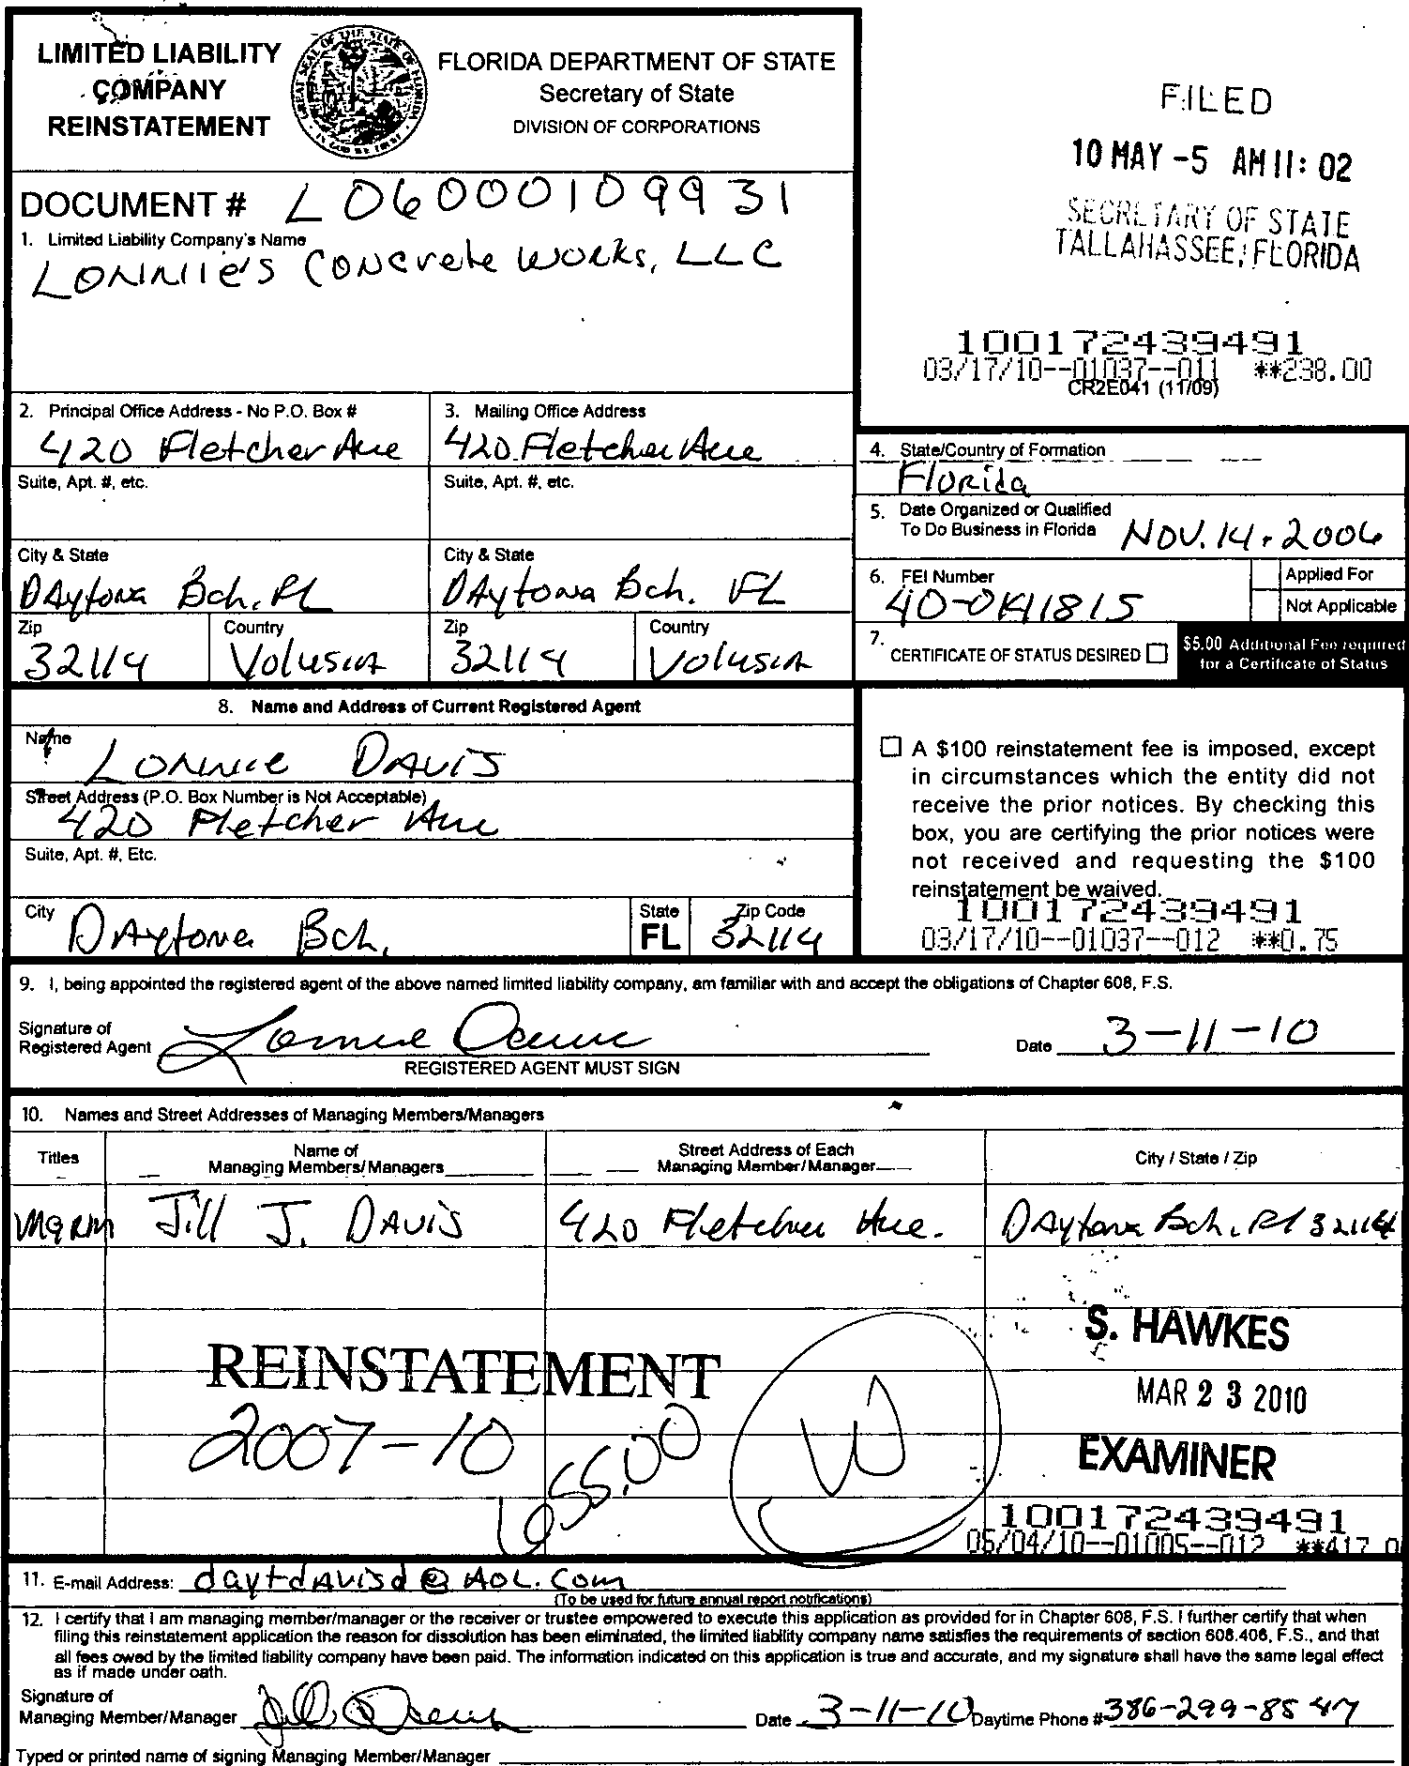 LIMITED LIABILITY
COMPANY
REINSTATEMENT
FLORIDA DEPARTMENT OF STATE
Secretary of State
DIVISION OF CORPORATIONS
FILED
10 MAY -5 AM 11: 02
SECRETARY OF STATE
TALLAHASSEE, FLORIDA
DOCUMENT # L06000109931
1. Limited Liability Company's Name
LONNIE'S CONCrete WORKS, LLC
100172439491
03/17/10--01037--011 **238.00
CR2E041 (11/09)
2. Principal Office Address - No P.O. Box #
420 Fletcher Ave
3. Mailing Office Address
420 Fletcher Ave
Suite, Apt. #, etc.
Suite, Apt. #, etc.
4. State/Country of Formation
FloRida
5. Date Organized or Qualified
To Do Business in Florida NOV. 14, 2006
City & State
DAytona Bch, FL
City & State
DAytona Bch. FL
6. FEI Number
Applied For
Not Applicable
Zip
32114
Country
Volusia
Zip
32114
Country
Volusia
7. CERTIFICATE OF STATUS DESIRED
$5.00 Additional Fee required
for a Certificate of Status
8. Name and Address of Current Registered Agent
Name
LONNIE DAVIS
Street Address (P.O. Box Number is Not Acceptable)
420 Fletcher Ave
Suite, Apt. #, Etc.
City
DAytona Bch.
State
FL
Zip Code
32114
A $100 reinstatement fee is imposed, except
in circumstances which the entity did not
receive the prior notices. By checking this
box, you are certifying the prior notices were
not received and requesting the $100
reinstatement be waived.
100172439491
03/17/10--01037--012 **0.75
9. I, being appointed the registered agent of the above named limited liability company, am familiar with and accept the obligations of Chapter 608, F.S.
Signature of
Registered Agent Lonnie Davis
Date 3-11-10
REGISTERED AGENT MUST SIGN
10. Names and Street Addresses of Managing Members/Managers
Titles
Name of
Managing Members/Managers
Street Address of Each
Managing Member/Manager
City / State / Zip
MGRM Jill J. DAVIS 420 Fletcher Ave. DAytona Bch, Fl 32114
S. HAWKES
REINSTATEMENT
MAR 2 3 2010
2007-10
655.00
EXAMINER
100172439491
05/04/10--01005--012 **417.0
11. E-mail Address: daytdavisd@AOL.Com
(To be used for future annual report notifications)
12. I certify that I am managing member/manager or the receiver or trustee empowered to execute this application as provided for in Chapter 608, F.S. I further certify that when
filing this reinstatement application the reason for dissolution has been eliminated, the limited liability company name satisfies the requirements of section 608.406, F.S., and that
all fees owed by the limited liability company have been paid. The information indicated on this application is true and accurate, and my signature shall have the same legal effect
as if made under oath.
Signature of
Managing Member/Manager Jill Davis
Date 3-11-10 Daytime Phone # 386-299-8547
Typed or printed name of signing Managing Member/Manager